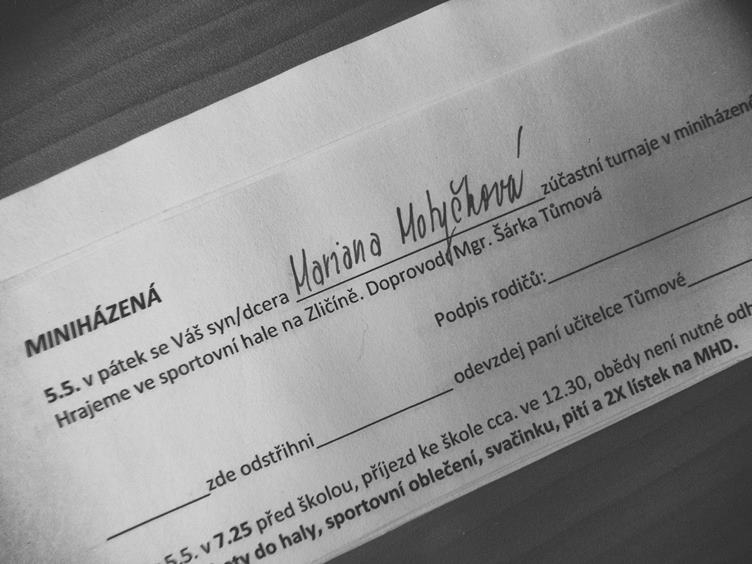 MINIHÁZENÁ
5.5. v pátek se Váš syn/dcera Mariana Motyčková zúčastní turnaje v miniházené
Hrajeme ve sportovní hale na Zličíně. Doprovod Mgr. Šárka Tůmová
Podpis rodičů:
zde odstřihni odevzdej paní učitelce Tůmové
5.5. v 7.25 před školou, příjezd ke škole cca. ve 12.30, obědy není nutné
do haly, sportovní oblečení, svačinku, pití a 2X lístek na MHD.